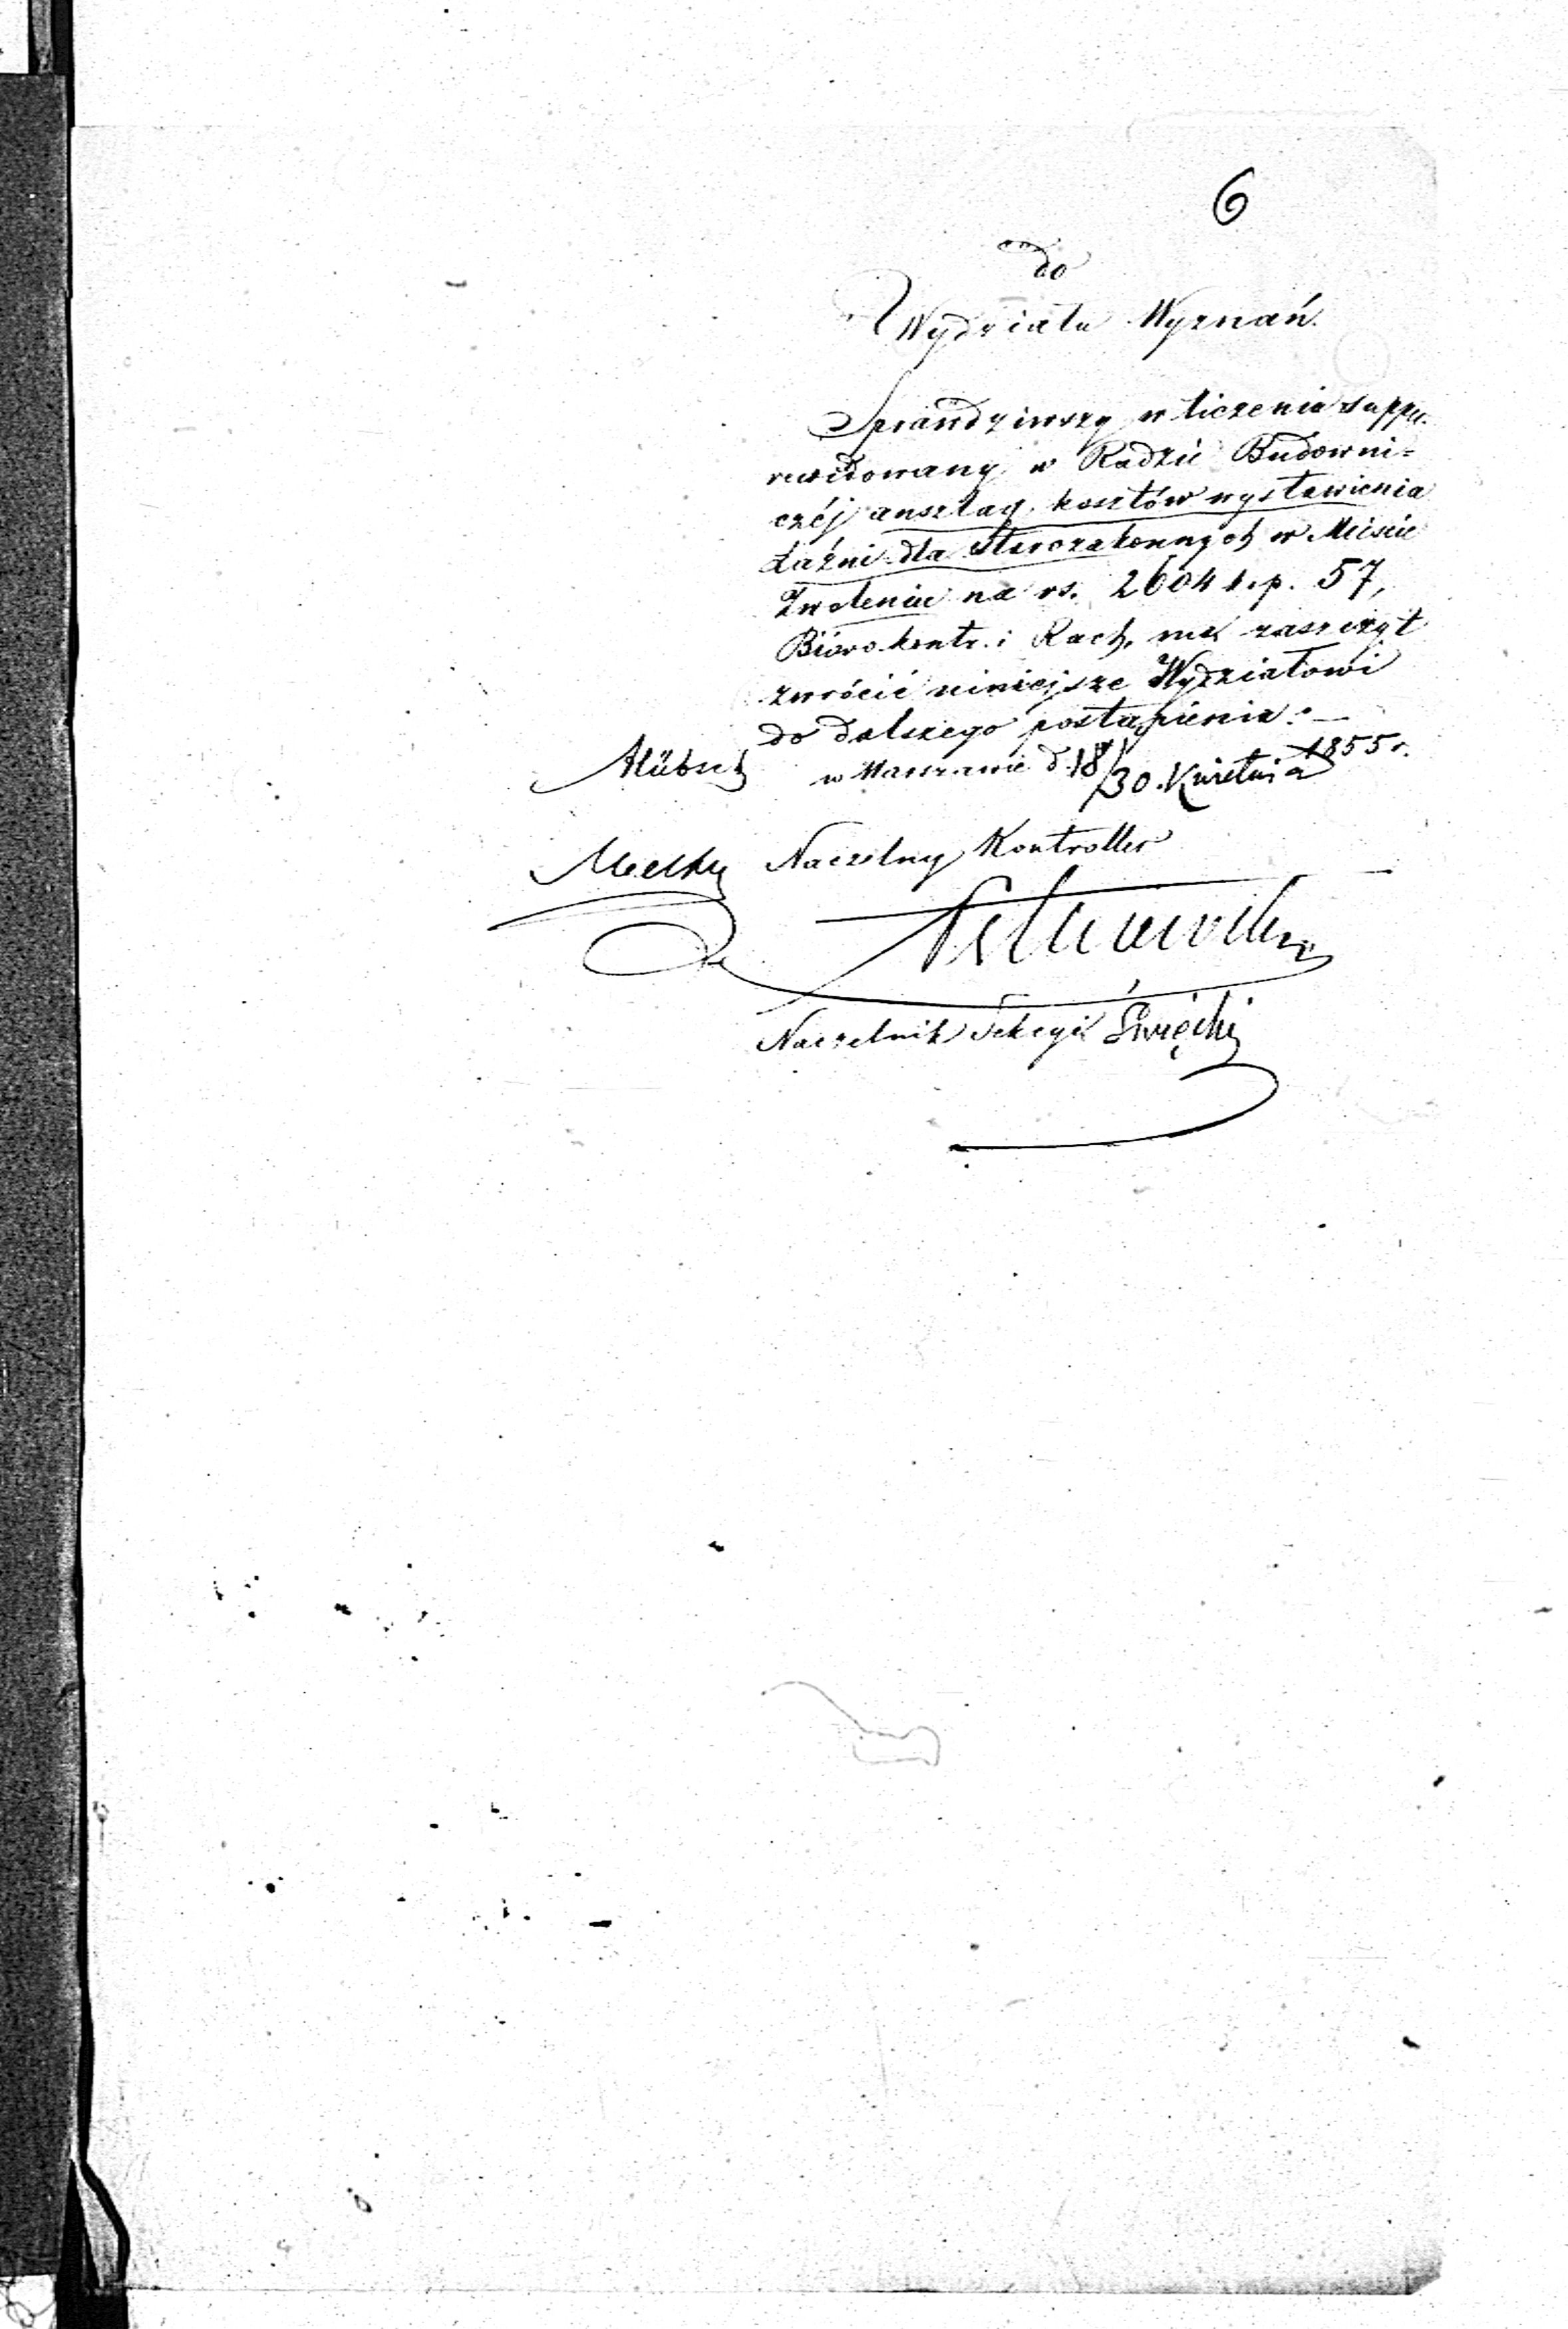 6
do
Wydziału Wyznań.
Sprawdziwszy w liczeniu supper-
rewidowany w Radzie Budowni=
czéj anszlag kosztów wystawienia
Łaźni dla Starozakonnych w Mieście
Zwoleniu na rs. 2604 k.p. 57,
Bióro kontr. i Rach. ma zaszczyt
zwrócić niniejsze Wydziałowi
do dalszego postąpienia. —
w Warszawie d. 18/30 Kwietnia 1855 r.
Hübsch
Naczelny Kontroller
Naczelnik Sekcyi Święcki